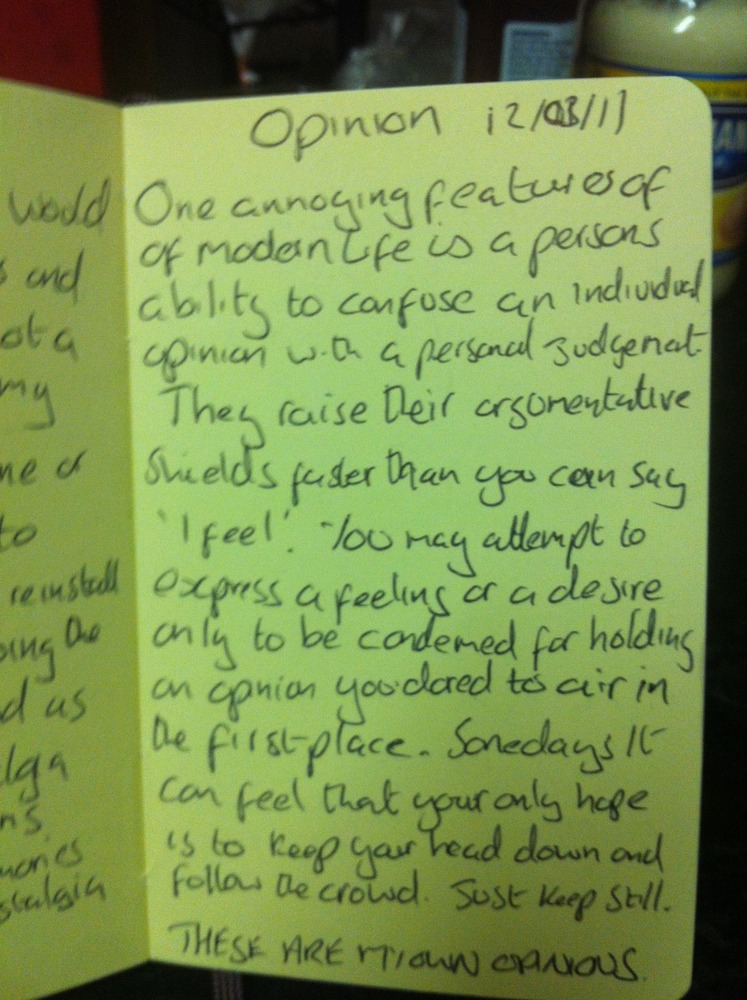 Opinion 12/03/11
One annoying features of
of modern life is a persons
ability to confuse an individual
opinion with a personal Judgement.
They raise their argomentative
shields faster than you can say
'I feel'. You may attempt to
express a feeling or a desire
only to be condemed for holding
an opnion you dared to air in
the first place. Somedays It
can feel that your only hope
is to keep your head down and
follow the crowd. Just keep still.
THESE ARE MY OWN OPINIOUS.
would
and
ot a
my
me or
to
reinstall
oing the
d as
lga
ns.
mories
stalgia